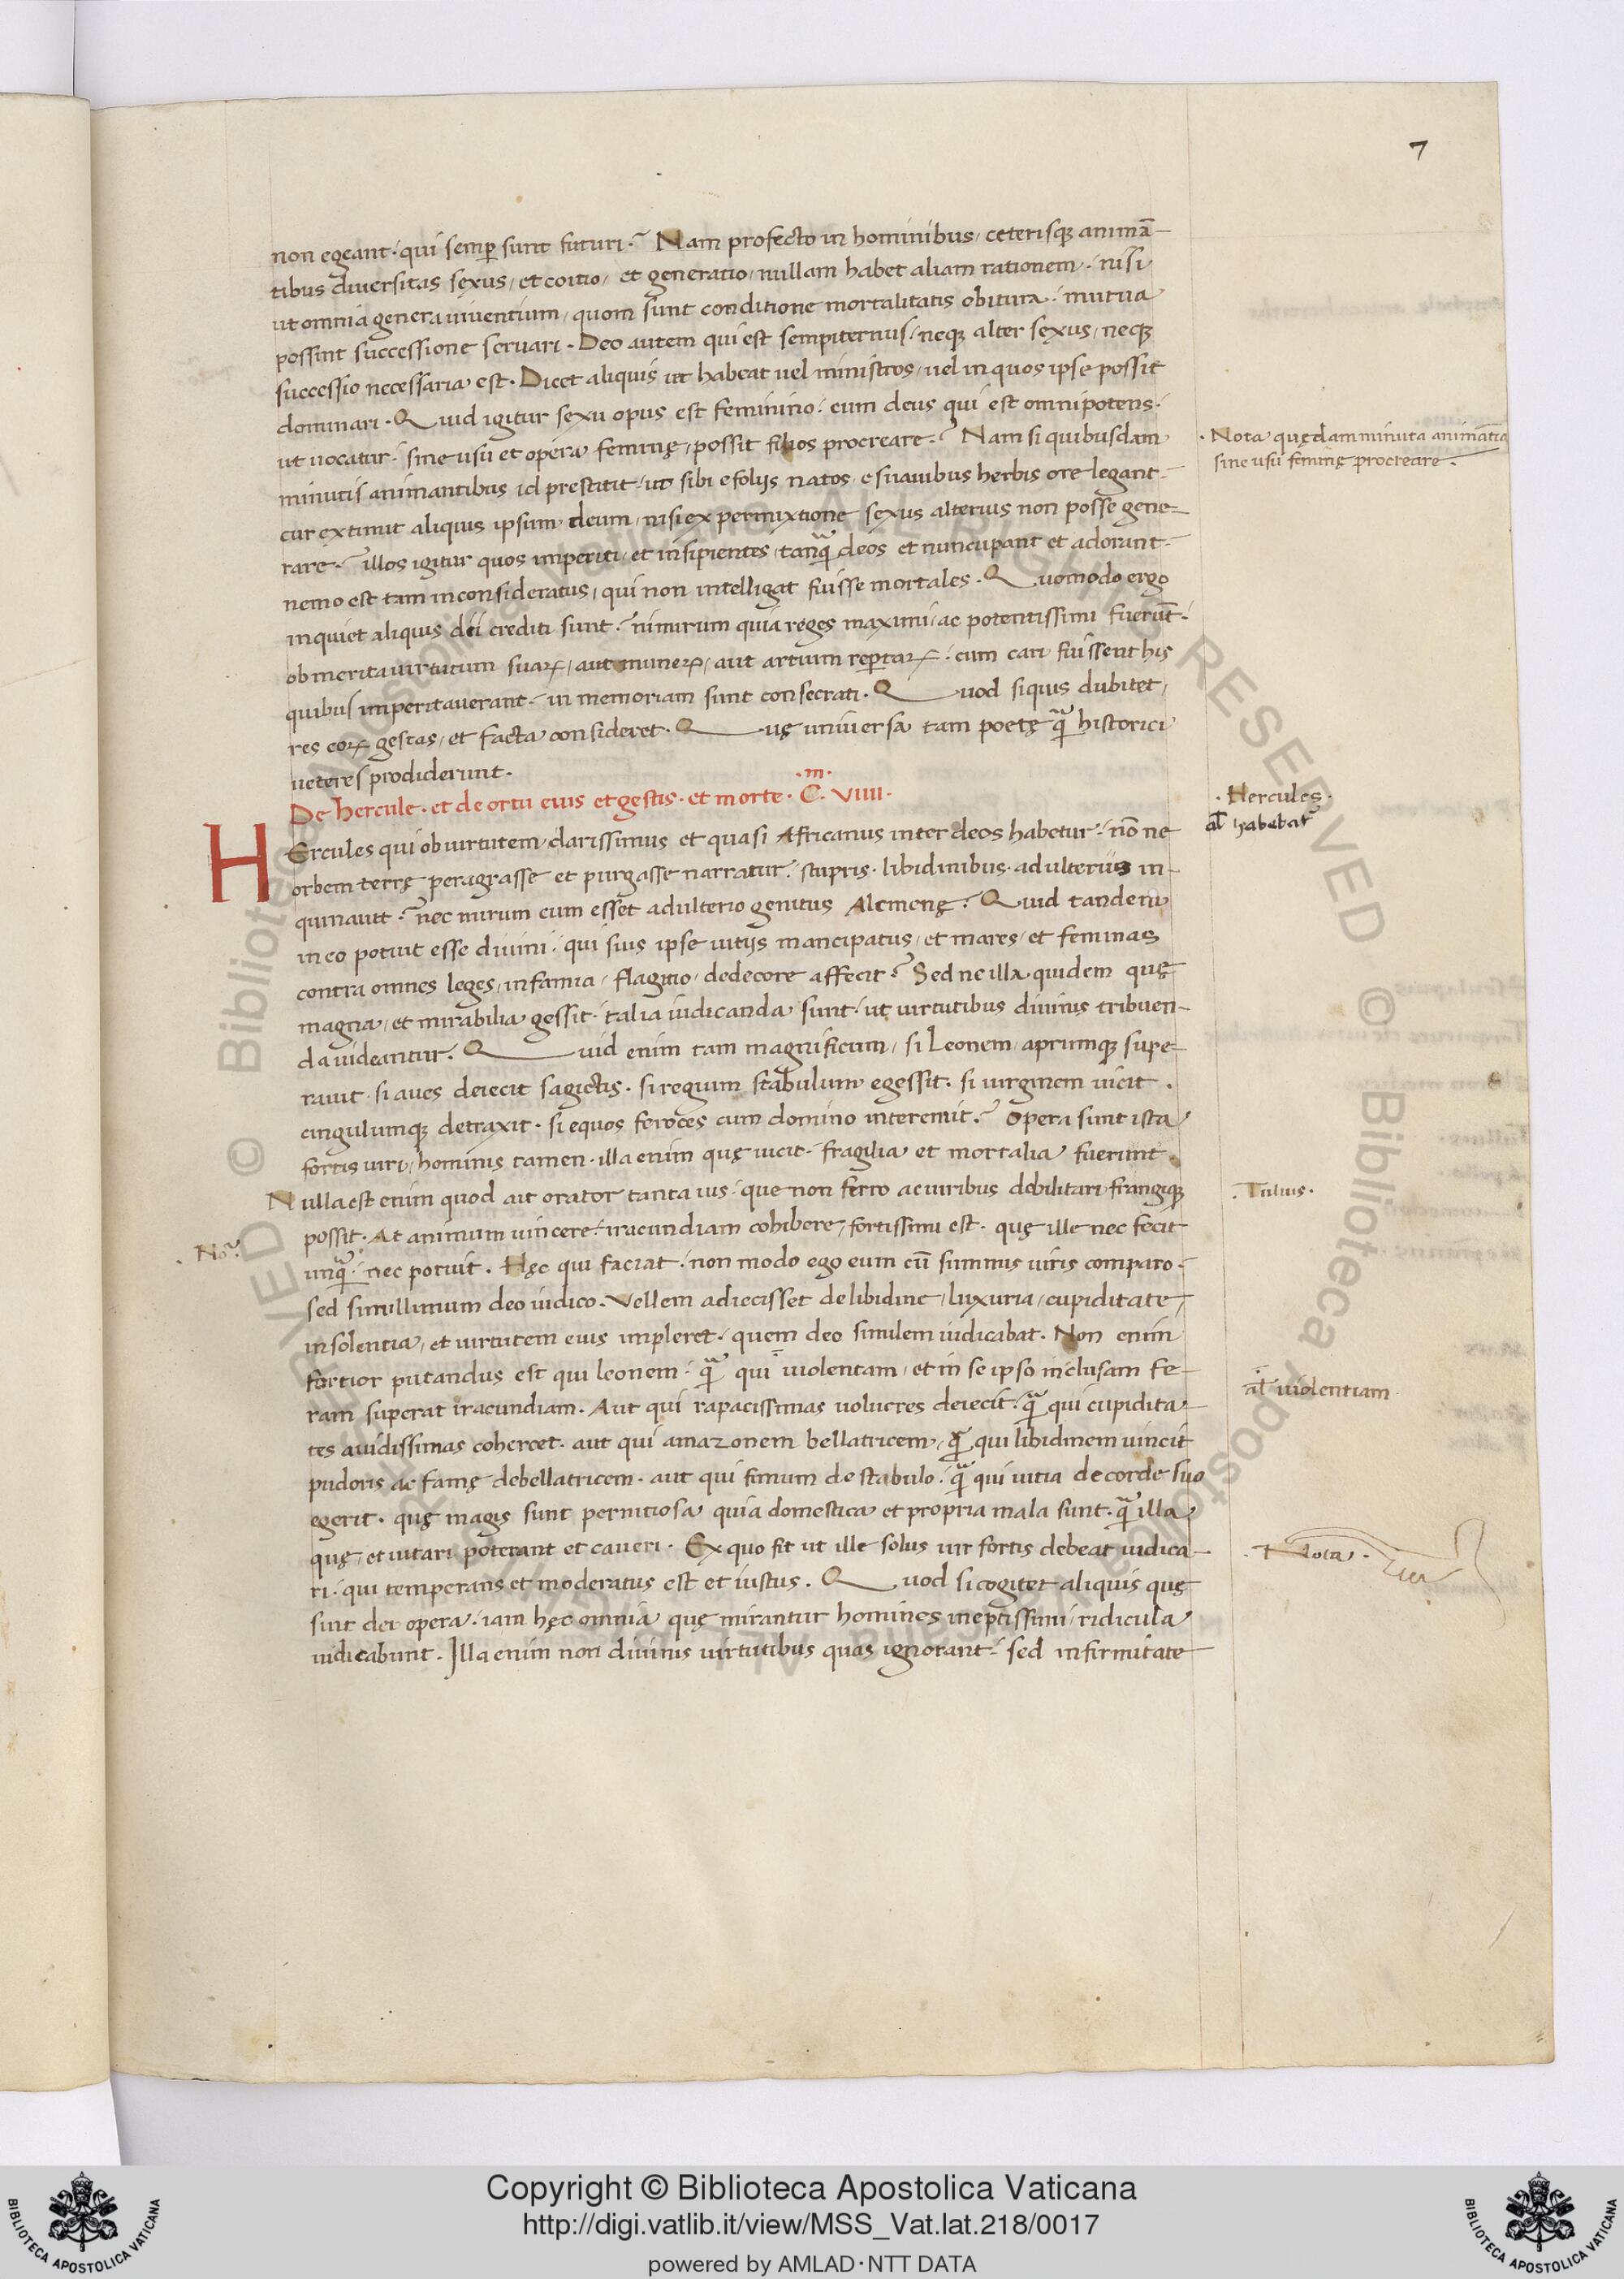 7
non egeant · qui semp̱ sunt futuri ·? Nam profecto in hominibus, ceterisqꝫ animā-
tibus diuersitas sexus, et coitio, et generatio, nullam habet aliam rationem · nisi
ut omnia genera uiuentium, quom sunt conditione mortalitatis obitura · mutua
possint successione seruari · Deo autem qui est sempiternus · neqꝫ alter sexus, neqꝫ
successio necessaria est · Dicet aliquis ut habeat uel ministros, uel in quos ipse possit
dominari · Quid igitur sexu opus est feminino · cum deus qui est omnipotens ·
ut uocatur · sine usu et opera feminę, possit filios procreare ·? Nam si quibusdam
minutis animantibus id prestitit · ut sibi e folijs natos, e suauibus herbis ore legant ·
cur extimit aliquis ipsum deum, nisi ex permixtione sexus alterius non posse gene-
rare ·? illos igitur quos imperiti, et insipientes, tanqᷓ deos et nuncupant et adorant ·
nemo est tam inconsideratus, qui non intelligat fuisse mortales · Quomodo ergo
inquiet aliquis dei crediti sunt ·? nimirum quia reges maximi, ac potentissimi fuerūt ·
ob merita uirtutum suaꝝ, aut muneꝝ, aut artium rep̱taꝝ · cum cari fuissent his
quibus imperitauerant · in memoriam sunt consecrati · Quod siquis dubitet,
res eoꝝ gestas, et facta consideret · Quę uniuersa tam poetę qᷓ historici
ueteres prodiderunt ·
De hercule · et de ortu eius et gestis · et morte · C.ᵐ VIIII ·
HErcules qui ob uirtutem, clarissimus et quasi Africanus inter deos habetur · nō ne
orbem terrę peragrasse et purgasse narratur · stupris · libidinibus · adulteriis in-
quinauit ·? nec mirum cum esset adulterio genitus Alcmenę ·? Quid tandem
in eo potuit esse diuini · qui suis ipse uitijs mancipatus, et mares, et feminas
contra omnes leges, infamia, flagitio, dedecore affecit ·? Sed ne illa quidem quę
magna, et mirabilia gessit · talia iudicanda sunt · ut uirtutibus diuinis tribuen-
da uideantur · Quid enim tam magnificum, si Leonem, aprumqꝫ supe-
rauit · si aues deiecit sagictis · si regium stabulum egessit · si uirginem uicit ·
cingulumqꝫ detraxit · si equos feroces cum domino interemit ·? Opera sunt ista
fortis uiri, hominis tamen · illa enim quę uicit · fragilia et mortalia fuerunt ·
Nulla est enim quod ait orator tanta uis · que non ferro ac uiribus debilitari frangiqꝫ
possit · At animum uincere · iracundiam cohibere, fortissimi est · quę ille nec fecit
unqᷓ · nec potuit · Hęc qui faciat · non modo ego eum cū summis uiris comparo ·
sed simillimum deo iudico · Vellem adiecisset de libidine, luxuria, cupiditate,
insolentia, et uirtutem eius impleret · quem deo similem iudicabat · Non enim
fortior putandus est qui leonem · qᷓ qui uiolentam, et in se ipso inclusam fe-
ram superat iracundiam · Aut qui rapacissimas uolucres deiecit · qᷓ qui cupidita-
tes auidissimas cohercet · aut qui amazonem bellatricem, qᷓ qui libidinem uincit
pudoris ac famę debellatricem · aut qui fimum de stabulo · qᷓ qui uitia de corde suo
egerit · quę magis sunt pernitiosa quia domestica et propria mala sunt · qᷓ illa
quę, et uitari poterant et caueri · Ex quo fit ut ille solus uir fortis debeat iudica-
ri · qui temperans et moderatus est et iustus · Quod si cogitet aliquis quę
sint dei opera · iam hęc omnia quę mirantur homines ineptissimi, ridicula
iudicabunt · Illa enim non diuinis uirtutibus quas ignorant · sed infirmitate
· Nota quędam minuta animātia
sine usu feminę procreare ·
· Hercules ·
al̄ habebat᷑
· Tulius ·
· Noᵃ ·
al̄ uiolentiam
· Nota ·
Copyright © Biblioteca Apostolica Vaticana
http://digi.vatlib.it/view/MSS_Vat.lat.218/0017
powered by AMLAD · NTT DATA
BIBLIOTECA APOSTOLICA VATICANA
BIBLIOTECA APOSTOLICA VATICANA